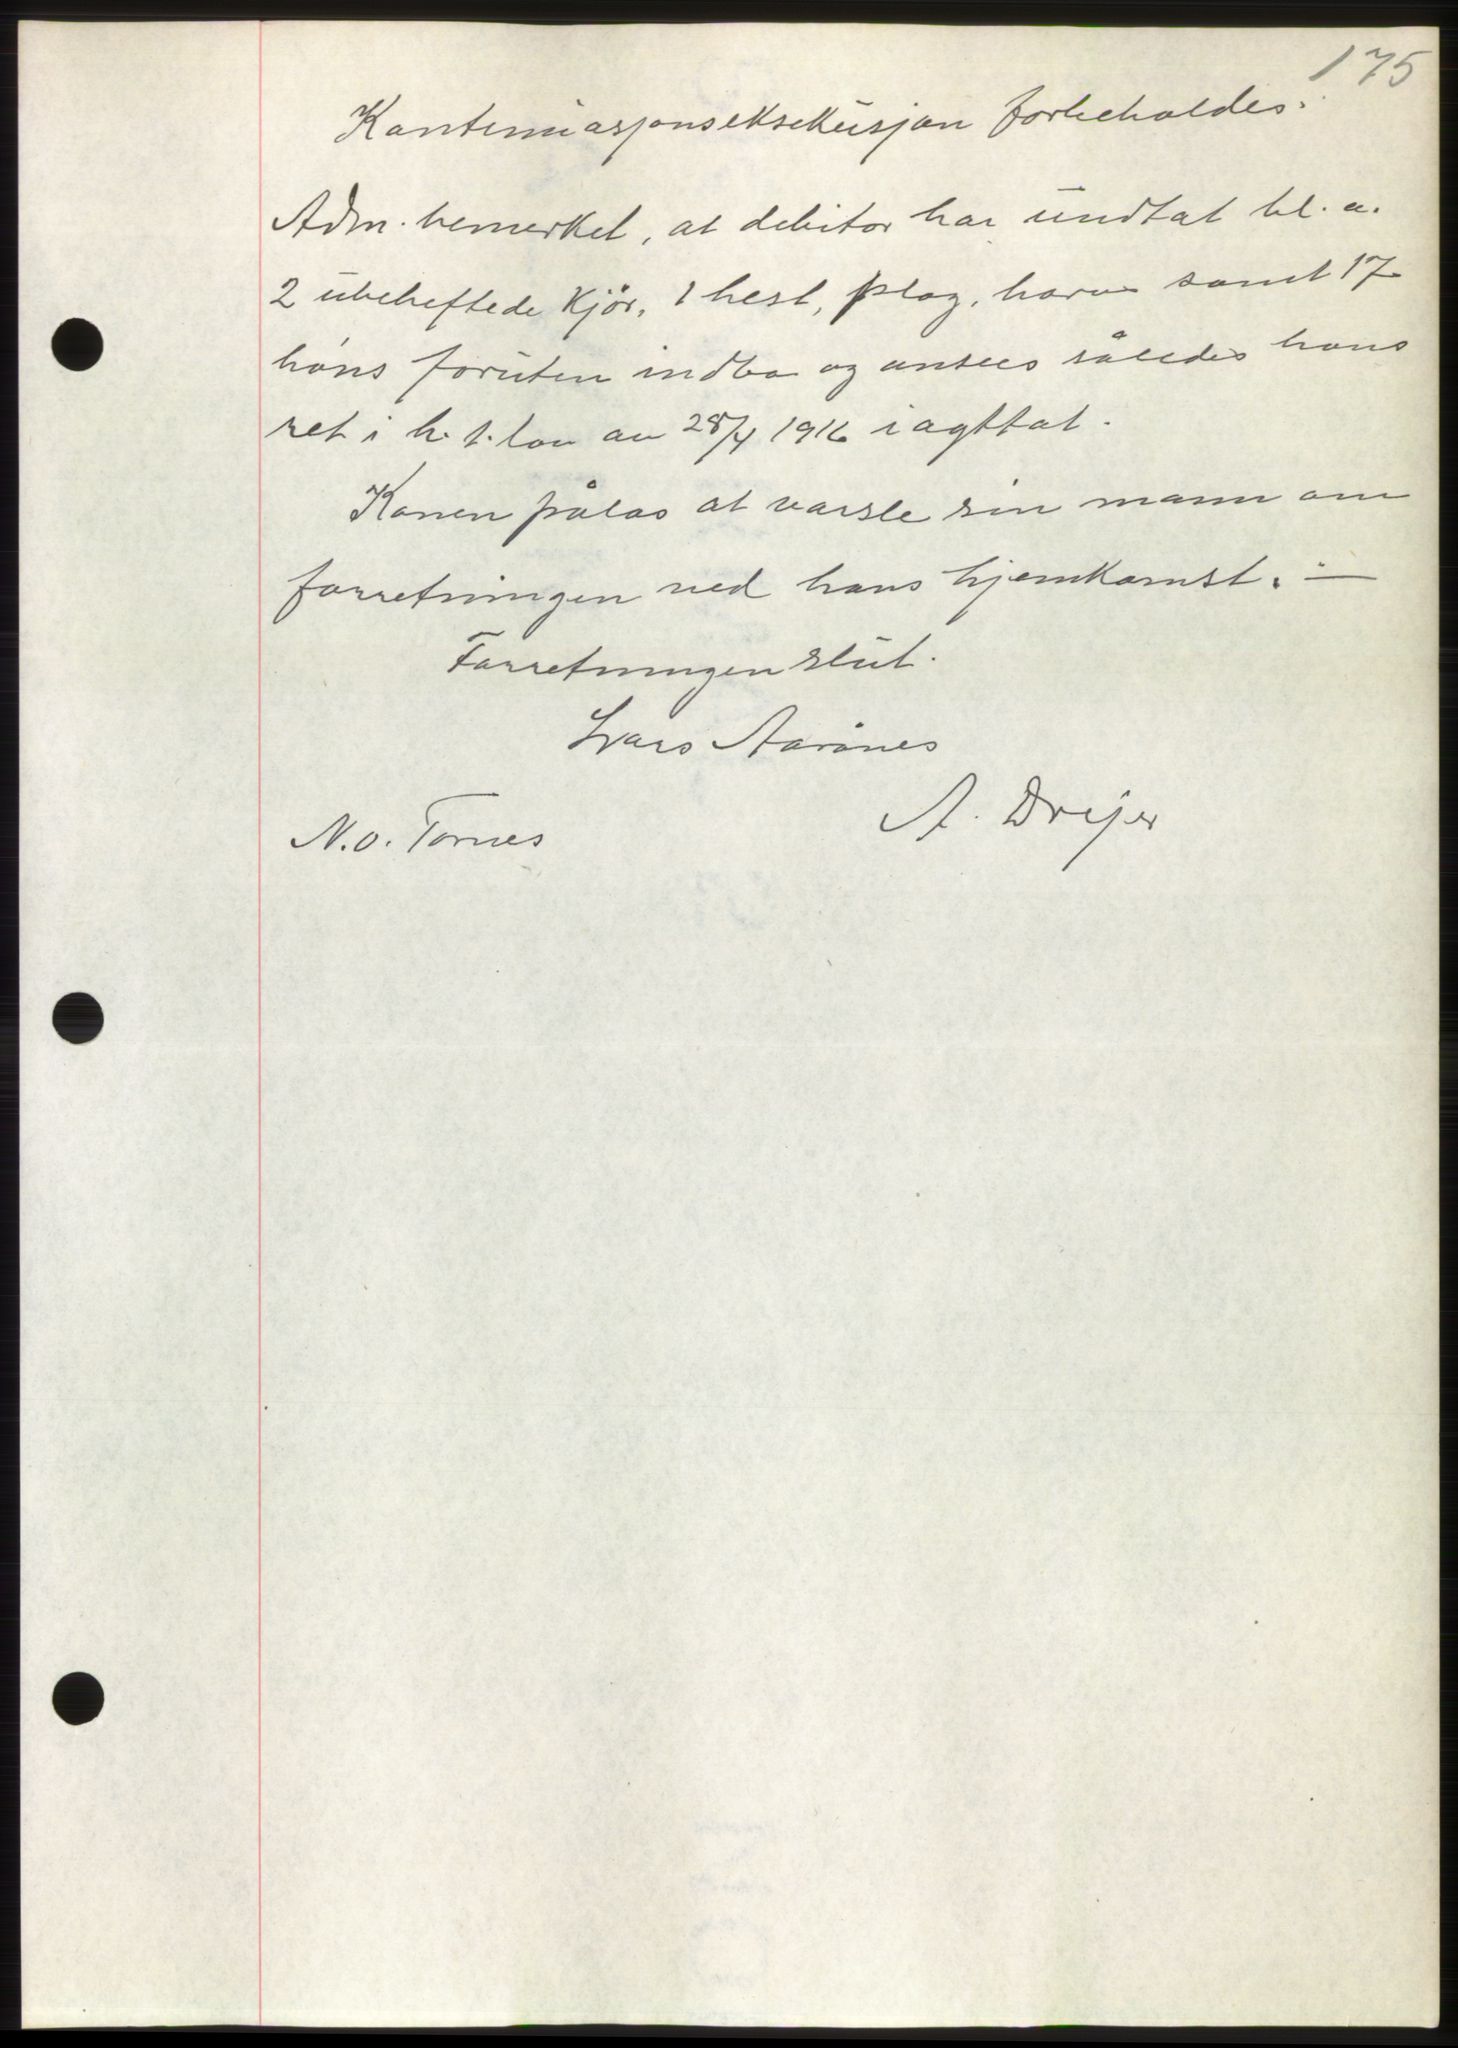 175
Kontinuasjonseksekusjon forbeholdes.
Adm. bemerket, at debitor har undtat bl. a.
2 ubeheftede kjör, 1 hest, plog, harv samt 17
höns foruten indbo og ansees således hans
ret i h. t. lov av 28/4 1916 iagttat.
Konen pålas at varsle sin mann om
forretningen ved hans hjemkomst. —
Forretningen slut.
Lars Aarönes
N. O. Tornes
A. Dreyer